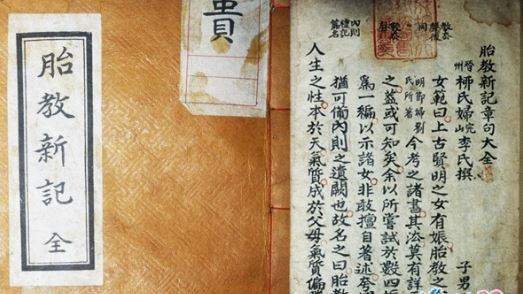 胎教新記 全
胎教新記章句大全
晉州柳氏婦完山李氏撰 子男
女範曰上古賢明之女有娠胎教之
明節婦劉氏所著 今考之諸書其法莫有詳
之蓋或可知矣余以所嘗試於數四
爲一編以示諸女非敢擅自著述夸
猶可備內則之遺闕也故名之曰胎教
人生之性本於天氣質成於父母氣質偏
內則禮記篇名